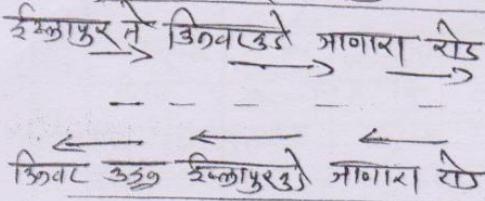 ईस्लापुर ते किनवटकडे जाणारा रोड
किनवट कडून ईस्लापुरकडे जाणारा रोड